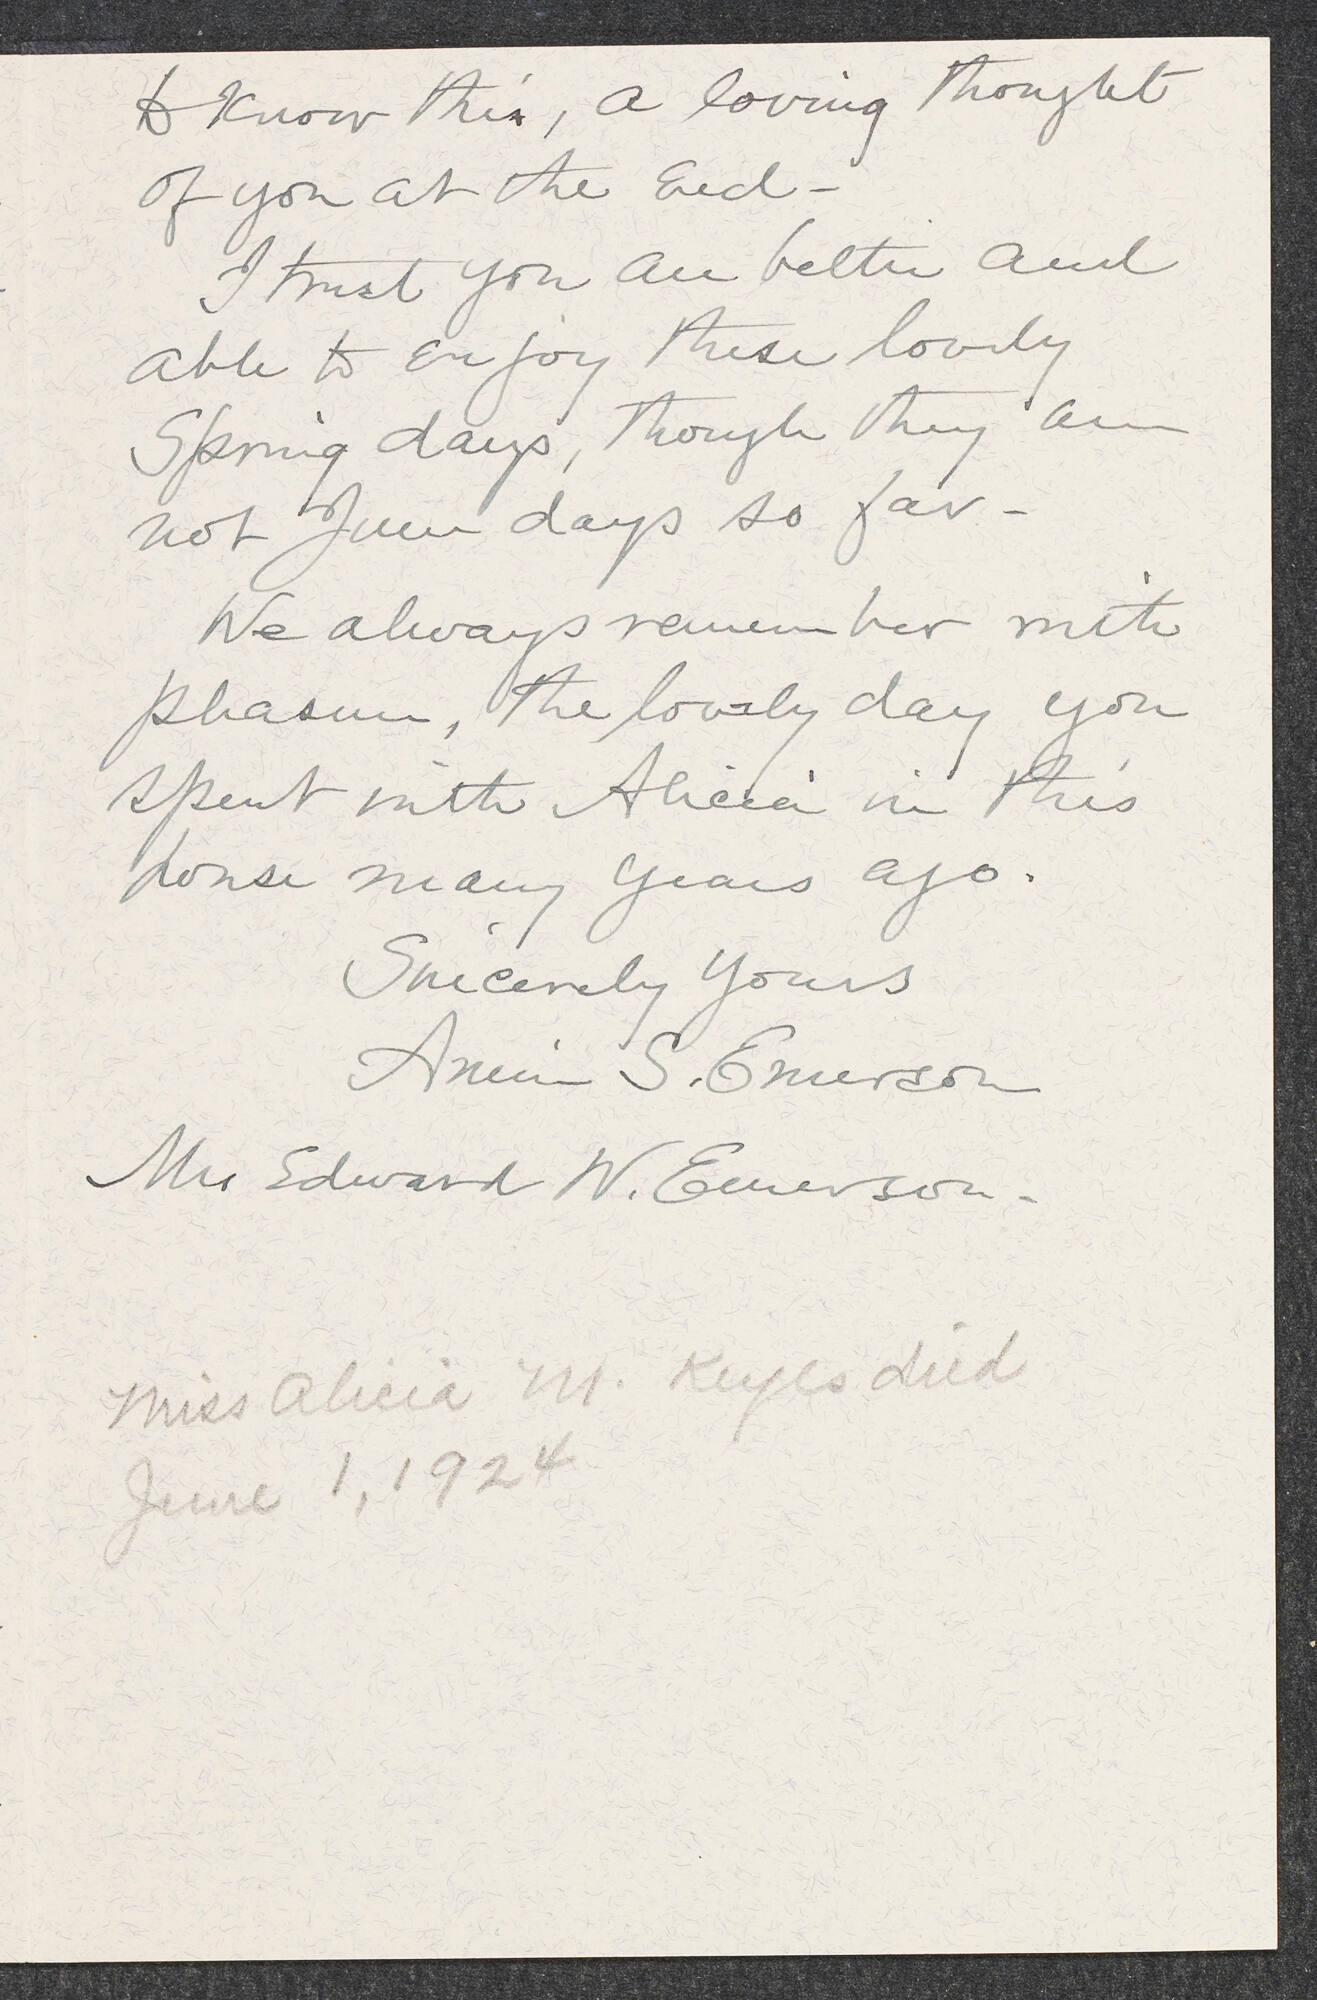 to know this, a loving thought
of you at the End -
I trust you are better and
able to enjoy these lovely
Spring days, though they are
not June days so far -
We always remember with
pleasure, the lovely day you
spent with Alicia in this
house many years ago.
Sincerely Yours
Annie S. Emerson
Mrs Edward W. Emerson -
Miss Alicia M. Keyes died
June 1, 1924